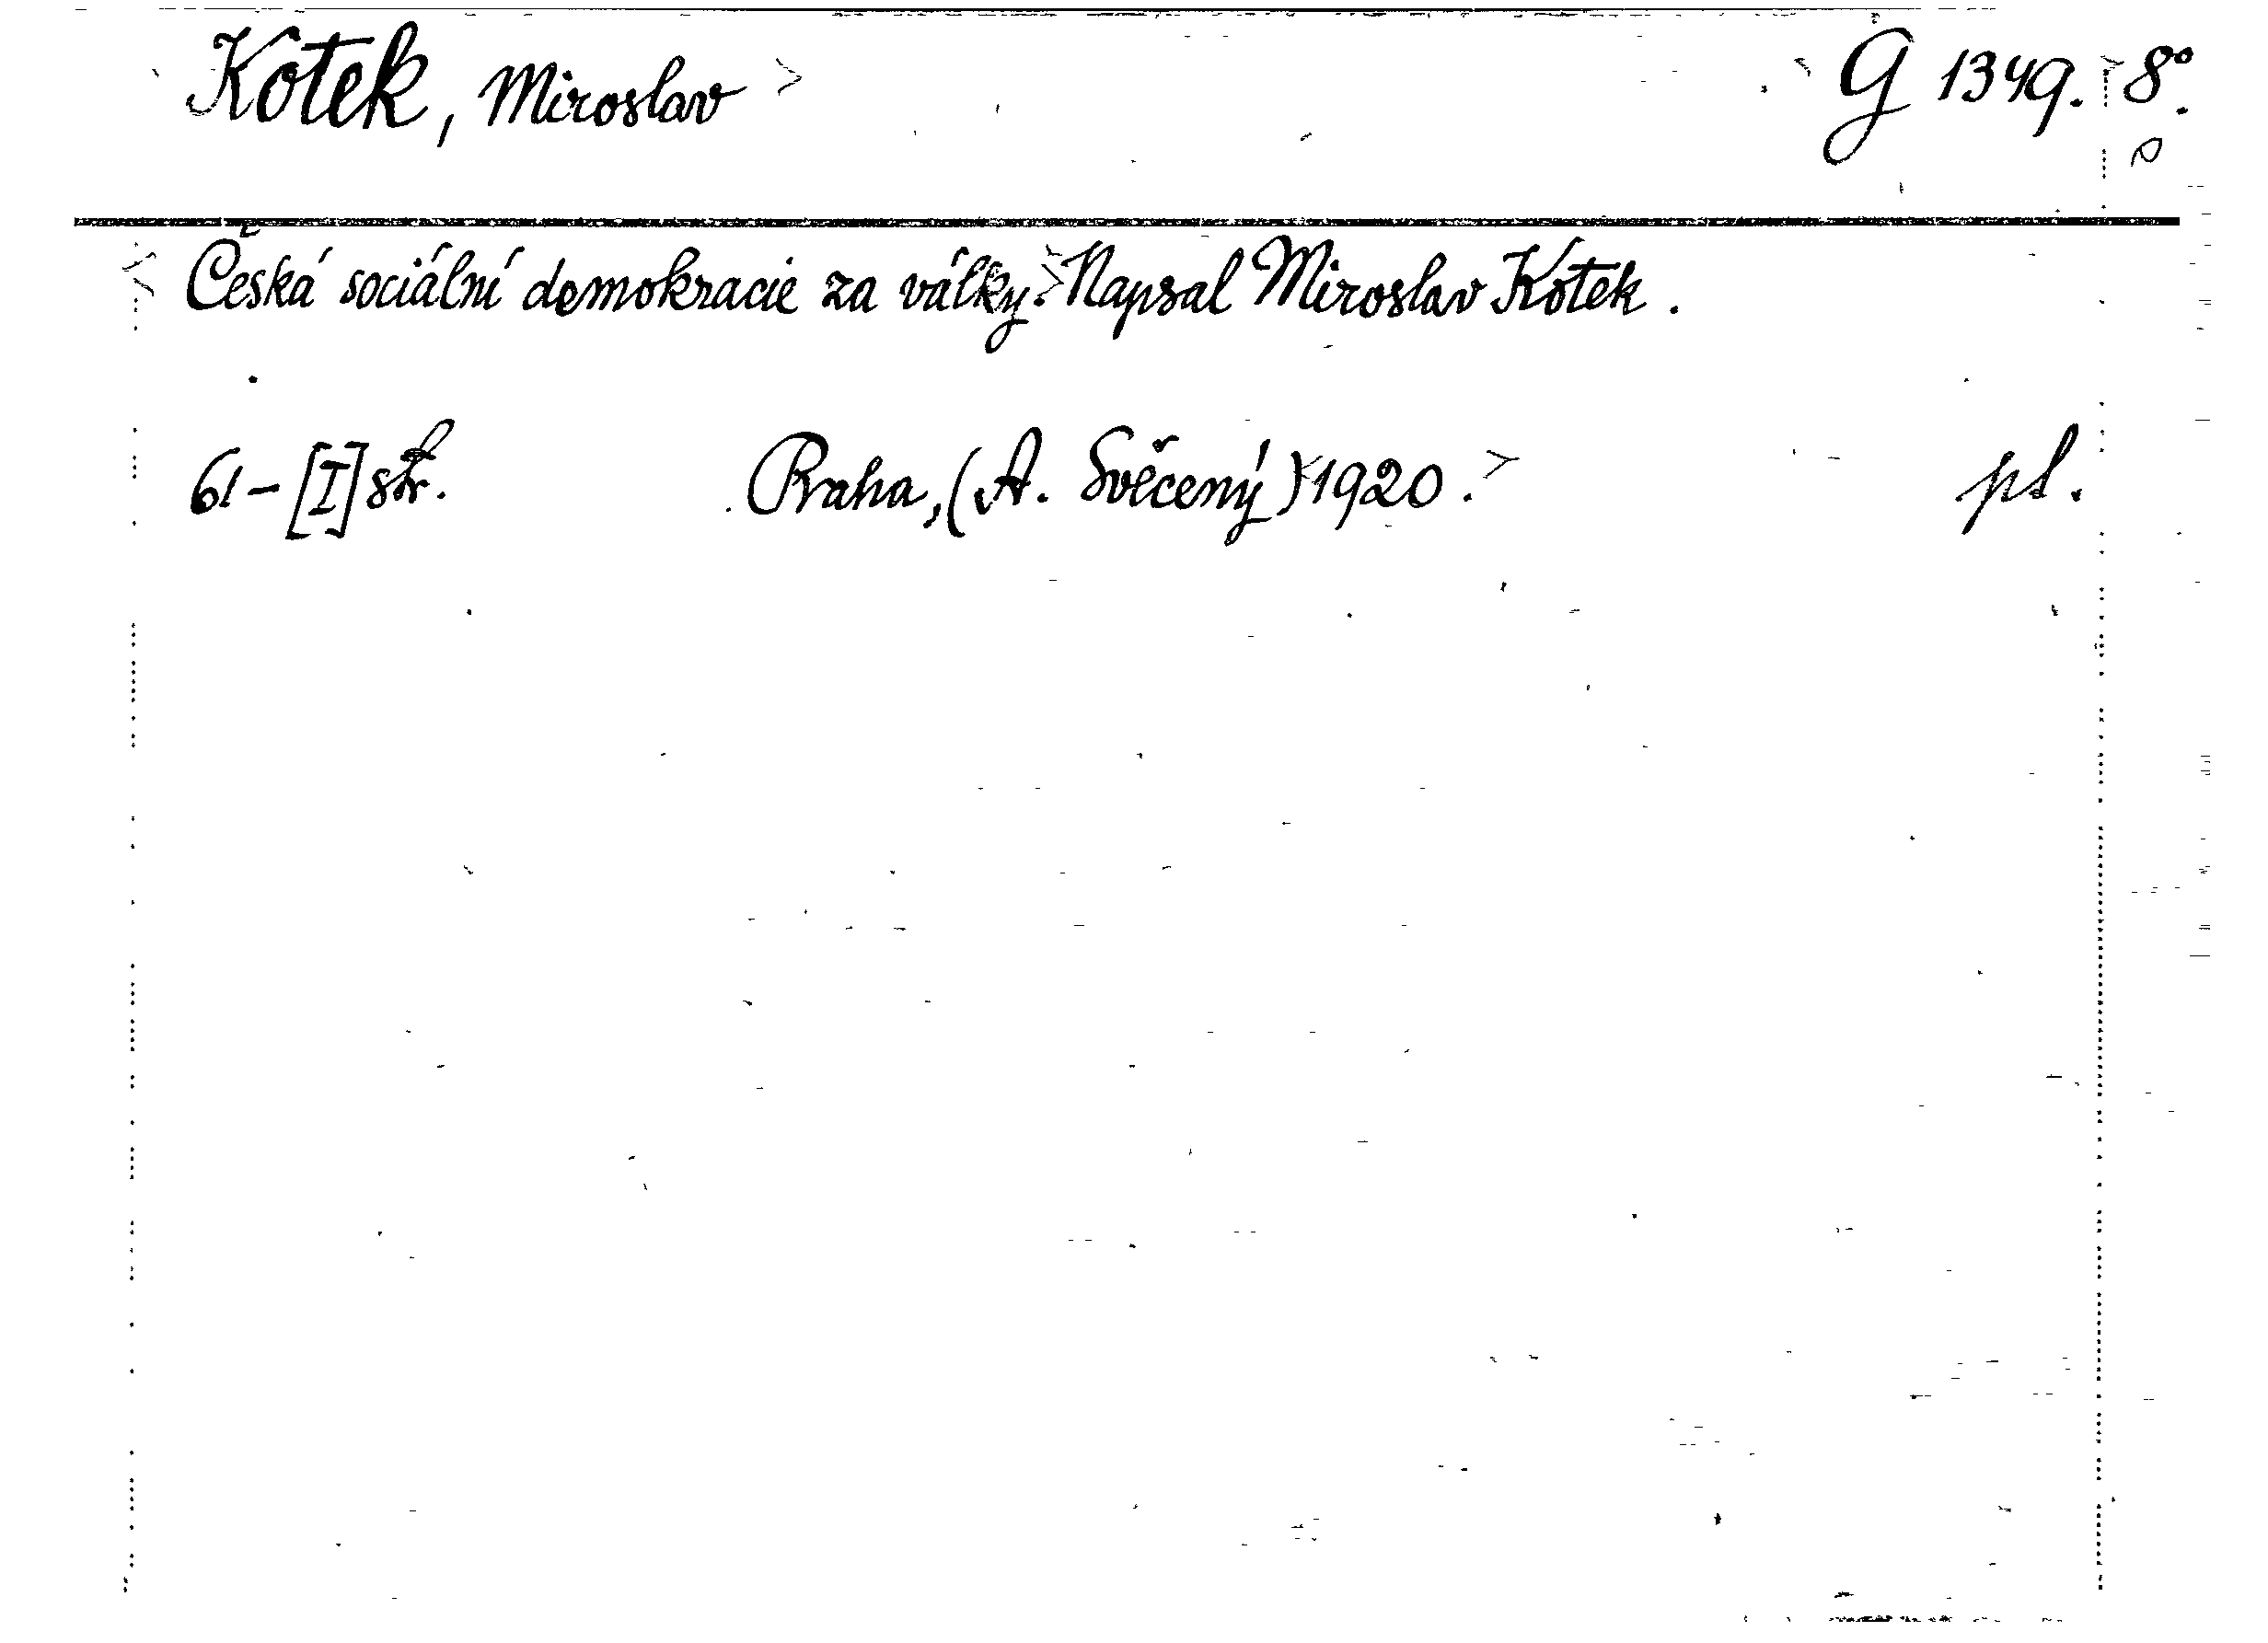 Kotek, Miroslav G 1349. 8°.
Česká sociální demokracie za války. Napsal Miroslav Kotek.
61-[I] str. Praha, (A. Svěcený) 1920. pl.